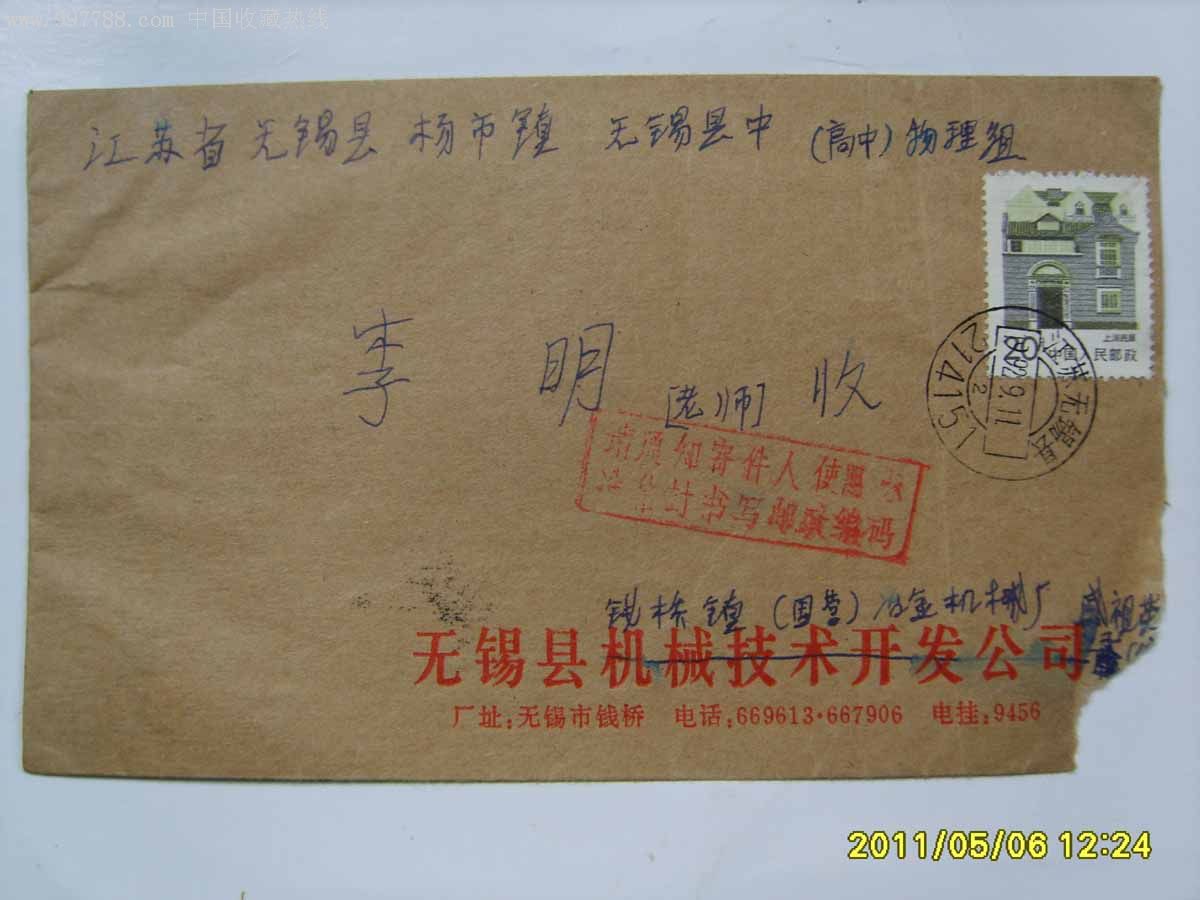 www.997788.com 中国收藏热线
江苏省无锡县 杨市镇 无锡县中 (高中)物理组
上海民居
20 中国人民邮政
江苏无锡县
1992.9.11
2
214151
李 明 [老师] 收
知寄件人使用
封书写邮政编码
钱桥镇(国营)冶金机械厂
祖英
无锡县机械技术开发公司
厂址:无锡市钱桥 电话:669613·667906 电挂:9456
2011/05/06 12:24